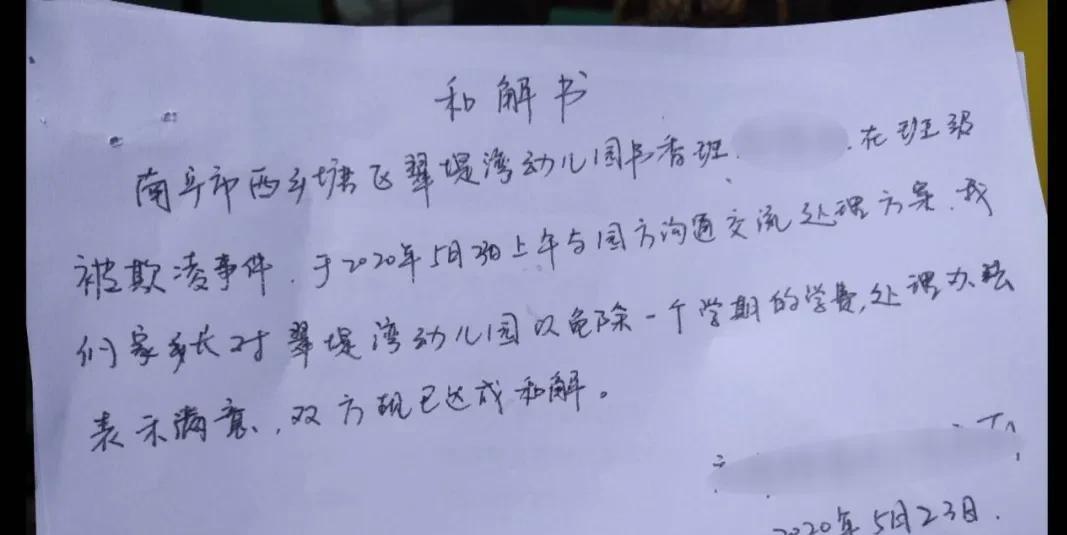 和解书
南宁市西乡塘区翠堤湾幼儿园书香班 在班级
被欺凌事件.于2020年5月23日上午与园方沟通交流处理方案.我
们家乡长对翠堤湾幼儿园以免除一个学期的学费,处理办法
表示满意,双方现已达成和解。
2020年5月23日.